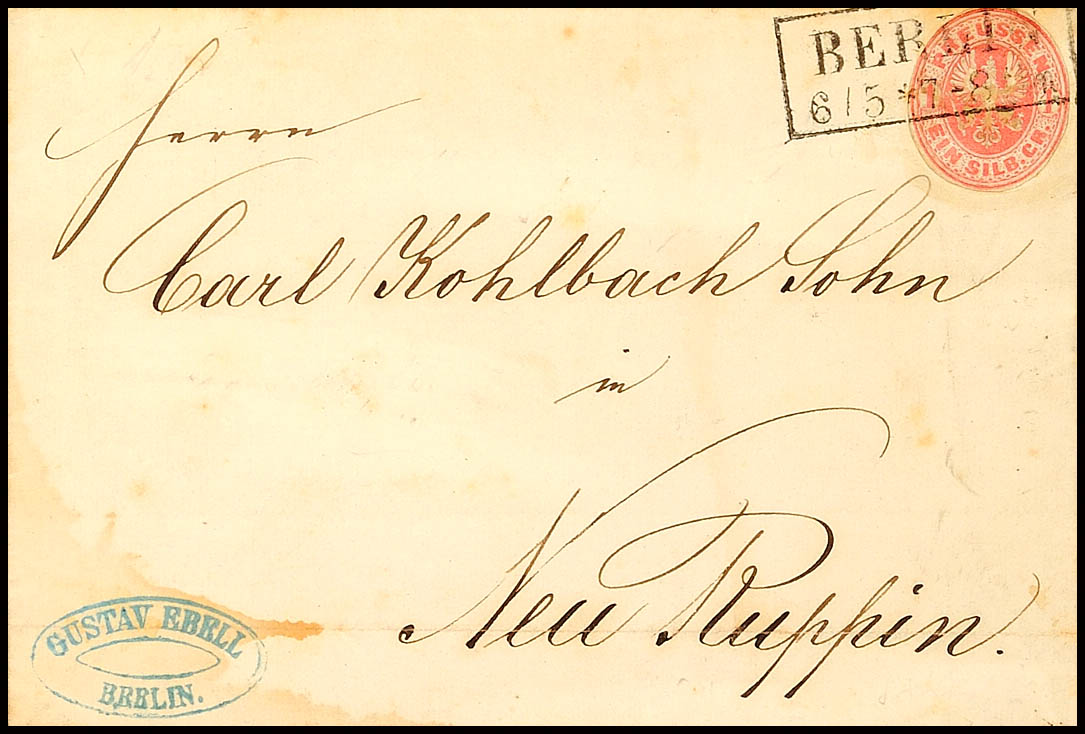 BERLIN
6/5 * 7-8
PREUSSEN
EIN SILB. GR.
Herrn
Carl Kohlbach Sohn
in
Neu Ruppin.
GUSTAV EBELL
BERLIN.